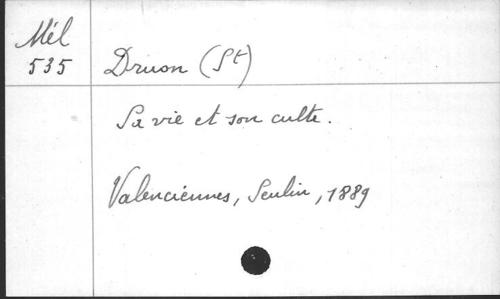 Mél
535
Druon (St)
Sa vie et son culte.
Valenciennes, Seulin, 1889